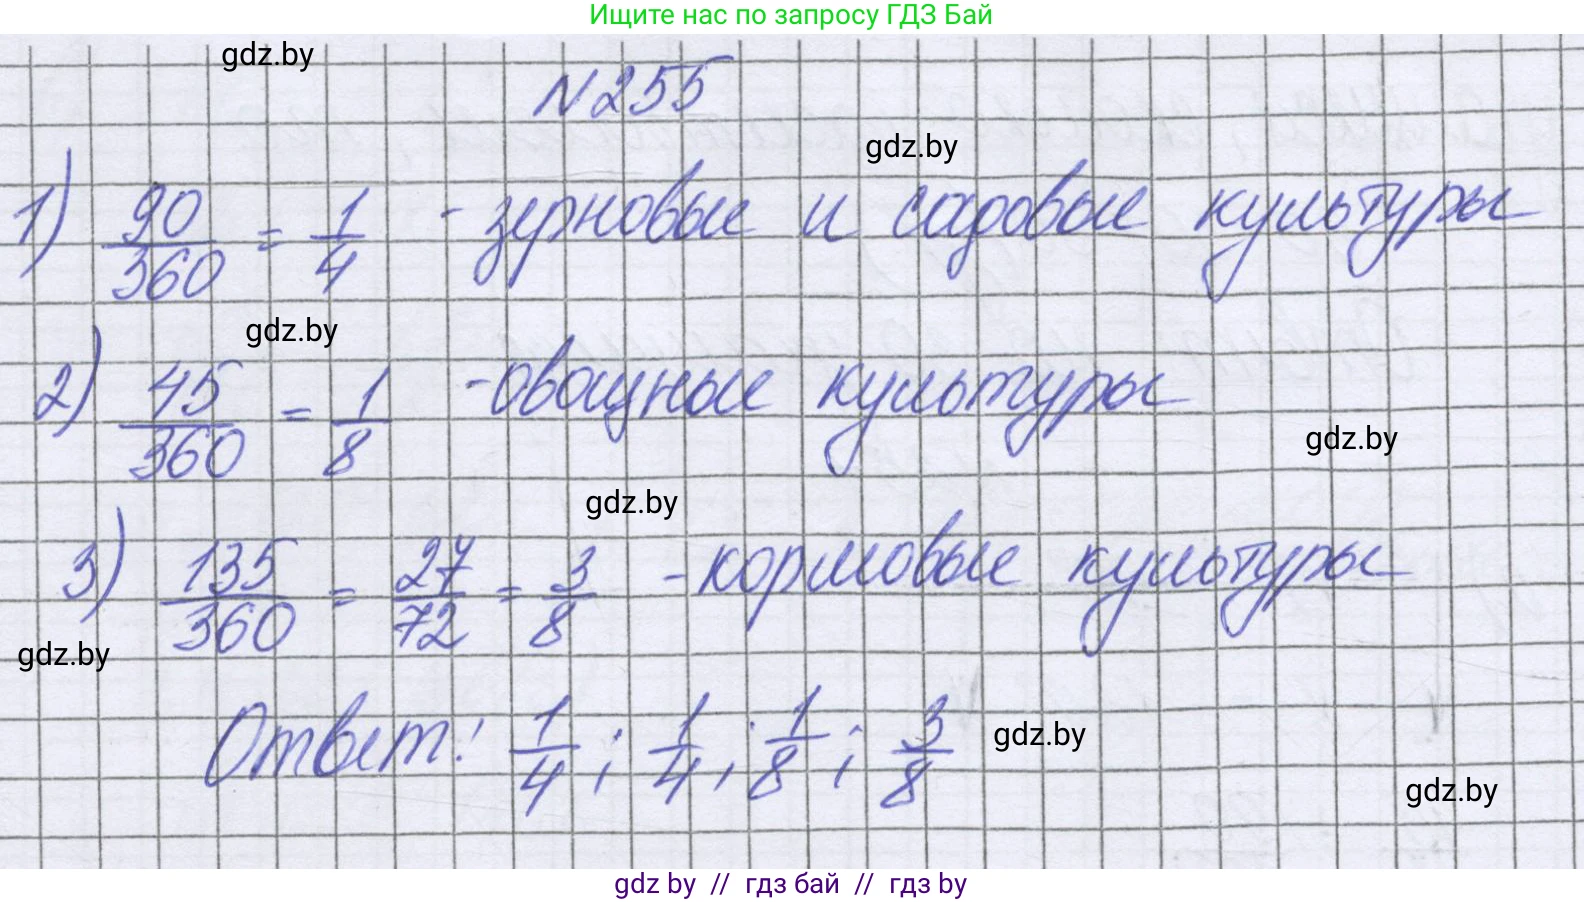 Ищите нас по запросу ГДЗ Бай
gdz.by
N 255
gdz.by
1) 90/360 = 1/4 - зерновые и садовые культуры
gdz.by
2) 45/360 = 1/8 - овощные культуры
gdz.by
gdz.by
3) 135/360 = 27/72 = 3/8 - кормовые культуры
gdz.by
Ответ: 1/4; 1/4; 1/8; 3/8
gdz.by
gdz.by
gdz by // гдз бай // гдз by